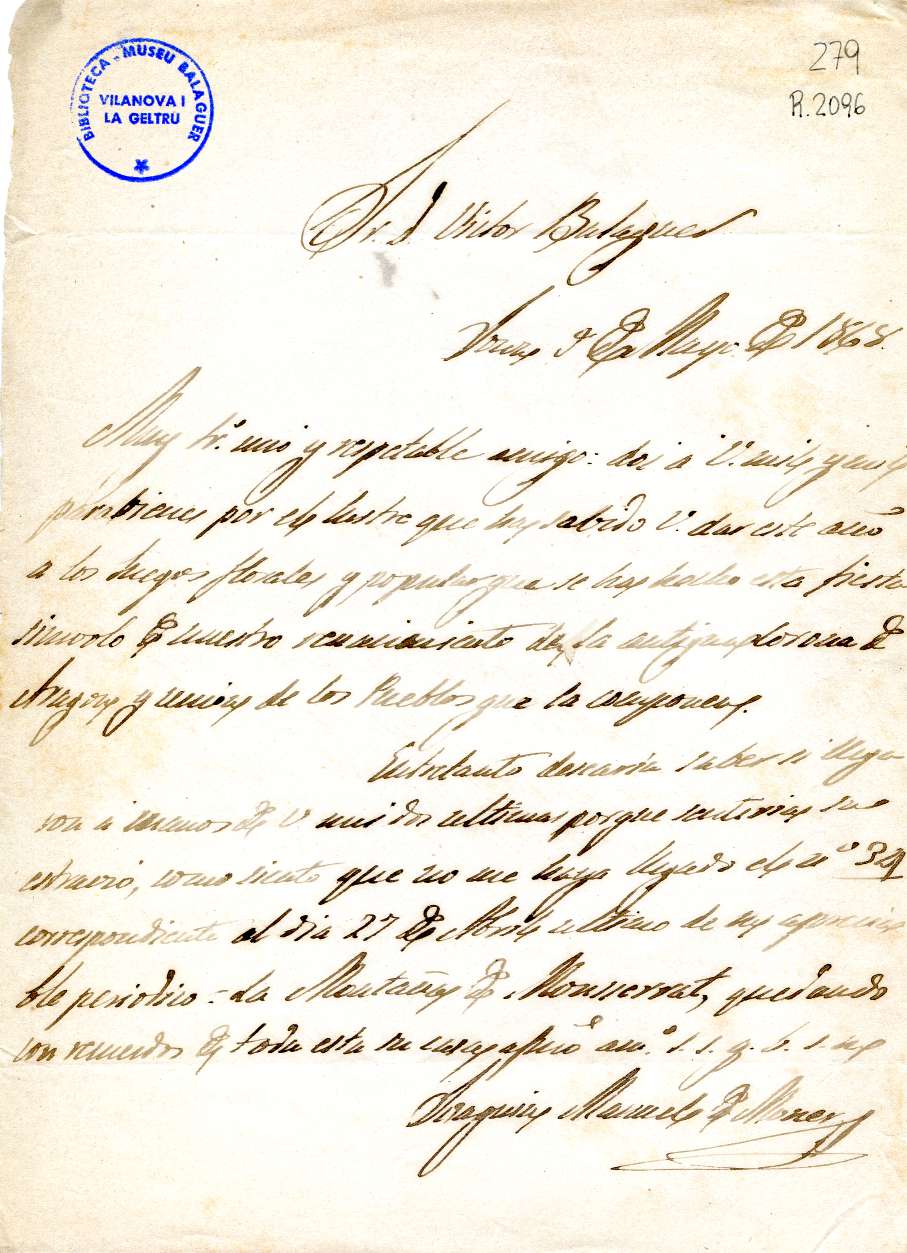 BIBLIOTECA - MUSEU BALAGUER
VILANOVA I
LA GELTRU
279
R. 2096
Sr. D. Victor Balaguer
de Mayo de 1868.
Muy Sr. mio y respetable amigo: doi á V. mil y mil
parabienes por el lustre que ha sabido V. dar este año
a los Juegos florales y popular que se ha hecho esta fiesta
simvolo de nuestro renacimiento de la antigua Corona de
Aragon y union de los Pueblos que la componen.
Entretanto desearia saber si llega
ron á manos de V. mis dos ultimas porque sentiria su
estravió, como siento que no me haya llegado el n.º 34
correspondiente al dia 27 de Abril ultimo de su aprecia
ble periodico - La Montaña de Monserrat, quedando
con recuerdos de toda esta su casa afmo. am.º s. s. q. b. s. m.
Joaquin Manuel de Moner